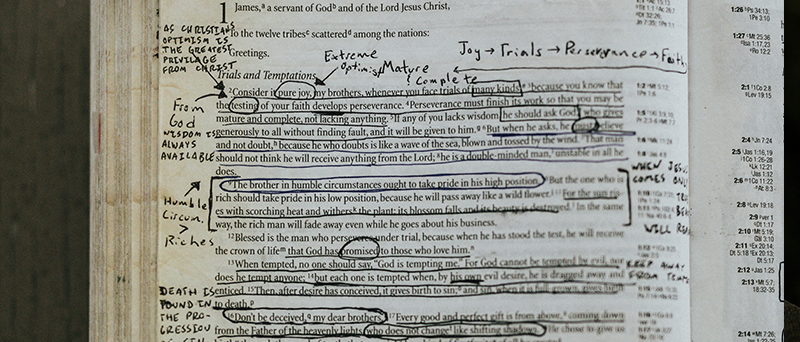 1 James,ᵃ a servant of Godᵇ and of the Lord Jesus Christ,
To the twelve tribesᶜ scatteredᵈ among the nations:
Greetings.
AS CHRISTIANS
OPTIMISM IS
THE GREATEST
PRIVILEGE
FROM CHRIST
Extreme
optimism
Mature
& Complete
Joy → Trials → Perseverance → Faith
Trials and Temptations
²Consider it pure joy, my brothers, whenever you face trials of many kinds, ³because you know that
the testing of your faith develops perseverance. ⁴Perseverance must finish its work so that you may be
mature and complete, not lacking anything. ⁵If any of you lacks wisdom, he should ask God, who gives
generously to all without finding fault, and it will be given to him. ⁶But when he asks, he must believe
and not doubt, because he who doubts is like a wave of the sea, blown and tossed by the wind. ⁷That man
should not think he will receive anything from the Lord; ⁸he is a double-minded man, unstable in all he
does.
From
God
WISDOM IS
ALWAYS
AVAILABLE
⁹The brother in humble circumstances ought to take pride in his high position. ¹⁰But the one who is
rich should take pride in his low position, because he will pass away like a wild flower. ¹¹For the sun ris-
es with scorching heat and withers the plant; its blossom falls and its beauty is destroyed. In the same
way, the rich man will fade away even while he goes about his business.
Humble
Circum.
>
Riches
WHEN JESUS
COMES ONLY
¹²Blessed is the man who perseveres under trial, because when he has stood the test, he will receive
the crown of lifeᵐ that God has promised to those who love him.ⁿ
¹³When tempted, no one should say, "God is tempting me." For God cannot be tempted by evil, nor
does he tempt anyone; ¹⁴but each one is tempted when, by his own evil desire, he is dragged away and
enticed. ¹⁵Then, after desire has conceived, it gives birth to sin; and sin, when it is full-grown, gives birth
to death.
KEEP AWAY
FROM
DEATH IS
FOUND IN
THE PRO-
GRESSION
OF SIN
¹⁶Don't be deceived, my dear brothers. ¹⁷Every good and perfect gift is from above, coming down
from the Father of the heavenly lights, who does not change like shifting shadows. ¹⁸He chose to give us
1:26 Ps 34:13;
1Pe 3:10
1:27 Mt 25:36
Isa 1:17,23
Ro 12:2
2:1 1Co 2:8
Lev 19:15
2:4 Jn 7:24
2:5 Jas 1:16,19
1Co 1:26-28
Lk 12:21
Jas 1:12
2:6 1Co 11:22
Ac 8:3
2:8 Lev 19:18
2:9 ver 1
Dt 1:17
2:10 Mt 5:19;
Gal 3:10
2:11 Ex 20:14;
Dt 5:18 Ex 20:13;
Dt 5:17
2:12 Jas 1:25
2:13 Mt 5:7;
18:32-35
2:14 Mt 7:26;